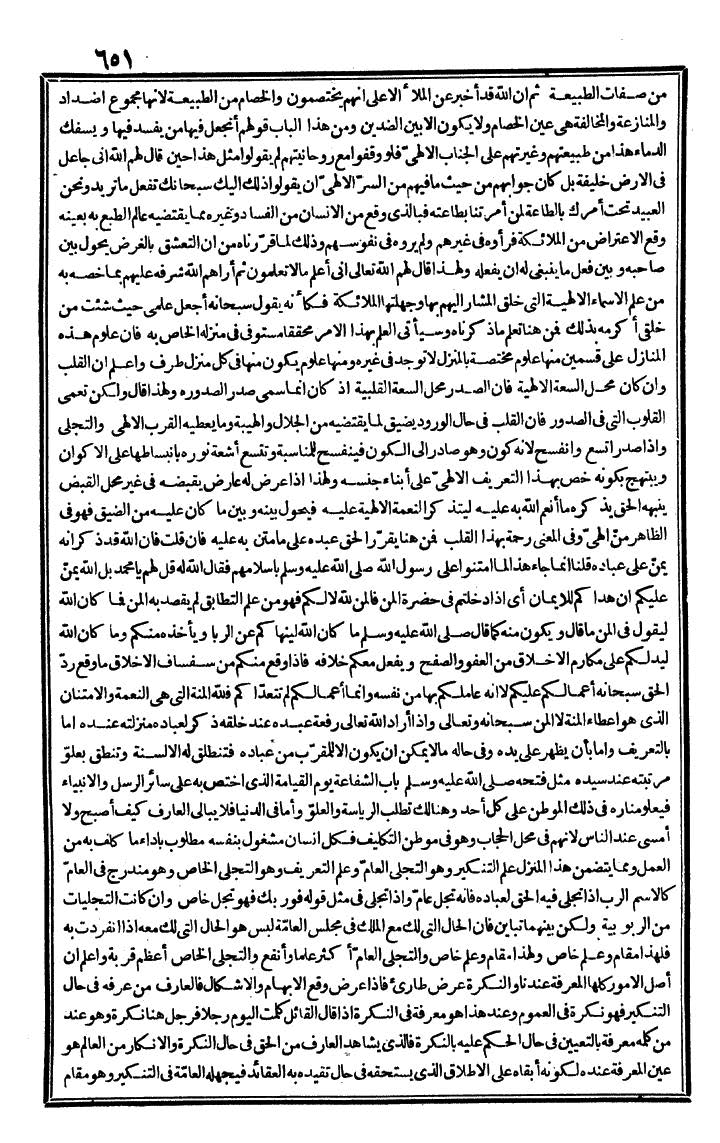 ٦٥١
من صفات الطبيعة ثم ان الله قد أخبر عن الملأ الاعلى انهم يختصمون والخصام من الطبيعة لانها مجموع اضداد
والمنازعة والمخالفة هى عين الخصام ولا يكون الا بين الضدين ومن هذا الباب قولهم أتجعل فيها من يفسد فيها ويسفك
الدماء هذا من طبيعتهم وغيرتهم على الجناب الالهىّ فلو وقفوا مع روحانيتهم لم يقولوا مثل هذا حين قال لهم الله انى جاعل
فى الارض خليفة بل كان جوابهم من حيث ما فيهم من السرّ الالهىّ ان يقولوا ذلك اليك سبحانك تفعل ما تريد ونحن
العبيد تحت أمرك بالطاعة لمن أمرتنا بطاعته فبالذى وقع من الانسان من الفساد وغيره مما يقتضيه عالم الطبع به بعينه
وقع الاعتراض من الملائكة فرأوه فى غيرهم ولم يروه فى نفوسهم وذلك لما قرّرناه من ان التعشق بالغرض يحول بين
صاحبه وبين فعل ما ينبغى له ان يفعله ولهذا قال لهم الله تعالى انى أعلم ما لا تعلمون ثم أراهم الله شرفه عليهم بما خصه به
من علم الاسماء الالهية التى خلق المشار اليهم بها وجهلتها الملائكة فكأنه يقول سبحانه أجعل علمى حيث شئت من
خلقى أكرمه بذلك فمن هنا تعلم ما ذكرناه وسيأتى العلم بهذا الامر محققا مستوفى فى منزله الخاص به فان علوم هذه
المنازل على قسمين منها علوم مختصة بالمنزل لا توجد فى غيره ومنها علوم يكون منها فى كل منزل طرف واعلم ان القلب
وان كان محل السعة الالهية فان الصدر محل السعة القلبية اذ كان انما سمى صدر الصدوره ولهذا قال ولكن تعمى
القلوب التى فى الصدور فان القلب فى حال الورود يضيق لما يقتضيه من الجلال والهيبة وما يعطيه القرب الالهى والتجلى
واذا صدر اتسع وانفسح لانه كون وهو صادر الى الكون فينفسح للمناسبة وتتسع أشعة نوره بانبساطها على الاكوان
ويبتهج بكونه خص بهذا التعريف الالهىّ على أبناء جنسه ولهذا اذا عرض له عارض يقبضه فى غير محل القبض
ينبهه الحق بذكره ما أنعم الله به عليه ليتذكر النعمة الالهية عليه فيحول بينه وبين ما كان عليه من الضيق فهو فى
الظاهر منّ الهىّ وفى المعنى رحمة بهذا القلب فمن هنا يقرّر الحق عبده على ما متن به عليه فان قلت فان الله قد ذكر انه
يمنّ على عباده قلنا انما جاء هذا لما امتنوا على رسول الله صلى الله عليه وسلم باسلامهم فقال الله له قل لهم يا محمد بل الله يمنّ
عليكم ان هداكم للايمان أى اذا دخلتم فى حضرة المن فالمن لله لا لكم فهو من علم التطابق لم يقصد به المن فما كان الله
ليقول فى المن ما قال ويكون منه كما قال صلى الله عليه وسلم ما كان الله لينهاكم عن الربا ويأخذه منكم وما كان الله
ليدلكم على مكارم الاخلاق من العفو والصفح ويفعل معكم خلافه فاذا وقع منكم من سفساف الاخلاق ما وقع ردّ
الحق سبحانه أعمالكم عليكم لا انه عاملكم بها من نفسه وانما أعمالكم لم تتعدّاكم فلله المنة التى هى النعمة والامتنان
الذى هو اعطاء المنة لا المن سبحانه وتعالى واذا أراد الله تعالى رفعة عبده عند خلقه ذكر لعباده منزلته عنده اما
بالتعريف واما بأن يظهر على يده وفى حاله ما لا يمكن ان يكون الا للمقرّب من عباده فتنطلق له الالسنة وتنطق بعلوّ
مرتبته عند سيده مثل فتحه صلى الله عليه وسلم باب الشفاعة يوم القيامة الذى اختص به على سائر الرسل والانبياء
فيعلو مناره فى ذلك الموطن على كل أحد وهنالك تطلب الرياسة والعلوّ وأما فى الدنيا فلا يبالى العارف كيف أصبح ولا
أمسى عند الناس لانهم فى محل الحجاب وهو فى موطن التكليف فكل انسان مشغول بنفسه مطلوب باداء ما كلف به من
العمل ومما يتضمن هذا المنزل علم التنكير وهو التجلى العامّ وعلم التعريف وهو التجلى الخاص وهو مندرج فى العامّ
كالاسم الرب اذا تجلى فيه الحق لعباده فانه تجل عامّ واذا تجلى فى مثل قوله فوربك فهو تجل خاص وان كانت التجليات
من الربوبية ولكن بينهما تباين فان الحال التى لك مع الملك فى مجلس العامّة ليس هو الحال التى لك معه اذا انفردت به
فلهذا مقام وعلم خاص ولهذا مقام وعلم خاص والتجلى العامّ أكثر علما وأنفع والتجلى الخاص أعظم قربة واعلم ان
أصل الامور كلها المعرفة عندنا والنكرة عرض طارئ فاذا عرض وقع الابهام والاشكال فالعارف من عرفه فى حال
التنكير فهو نكرة فى العموم وعند هذا هو معرفة فى النكرة اذا قال القائل كلمت اليوم رجلا فرجل هنا نكرة وهو عند
من كلمه معرفة بالتعيين فى حال الحكم عليه بالنكرة فالذى يشاهد العارف من الحق فى حال النكرة والانكار من العالم هو
عين المعرفة عنده لكونه أبقاه على الاطلاق الذى يستحقه فى حال تقيده به العقائد فيجهله العامّة فى التنكير وهو مقام